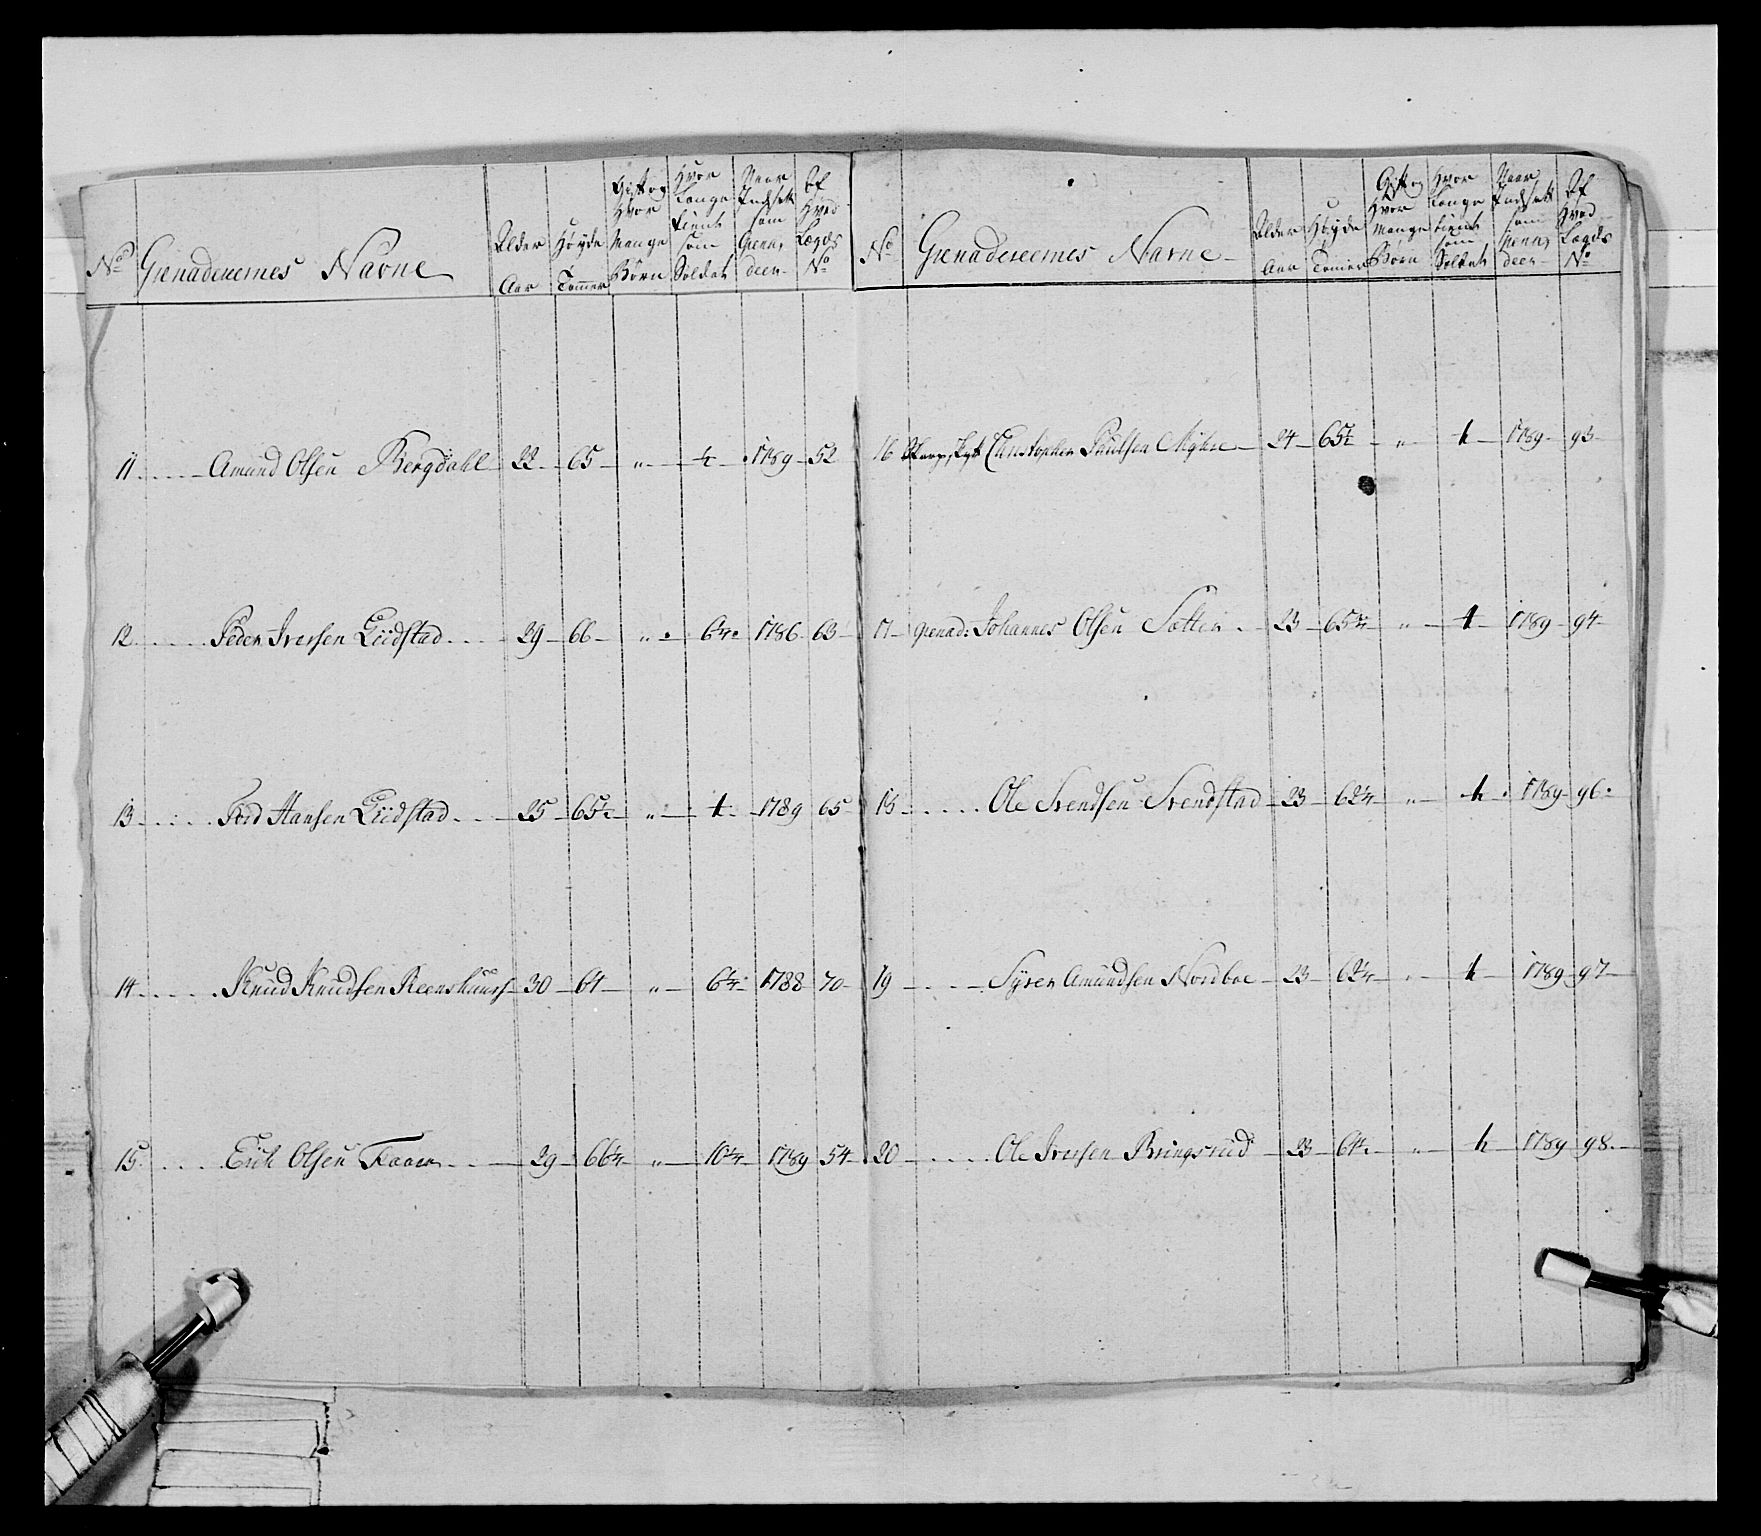 No Grenaderernes Navne Alder Aar Høyde Tommer Gift og Hvor Mange Børn Hvor Længe tient som Soldat Naar Indsatt som Grenadeer Af Hvad Lægds No
11 Amund Olsen Bergdahl 22 65 " ½ 1789 52
12 Peder Iversen Liidstad 29 66 " 6¼ 1786 63
13 Hansen Liidstad 25 65½ " 1 1789 65
14 Knud Knudsen 30 64 " 6¼ 1788 70
15 Erich Olsen 29 66¼ " 10¼ 1789 54
No Grenadeerernes Navne Alder Aar Høyde Tomer Gift og Hvor Mange Børn Hvor Længe tient som Soldat Naar Indsatt som Grenadeer Af Hvad Lægds No
16 Skarpskytt Christopher Paulsen Myhre 24 65½ " 1789 93
17 Grenad: Johannes Olsen Sætter 23 65¾ " 1 1789 94
18 Ole Svendsen Svendstad 23 62¼ " 1789 96
19 Syver Amundsen Nordboe 23 62¼ " 1789 97
20 Ole Iversen Bringsrud 23 64 " 1789 98